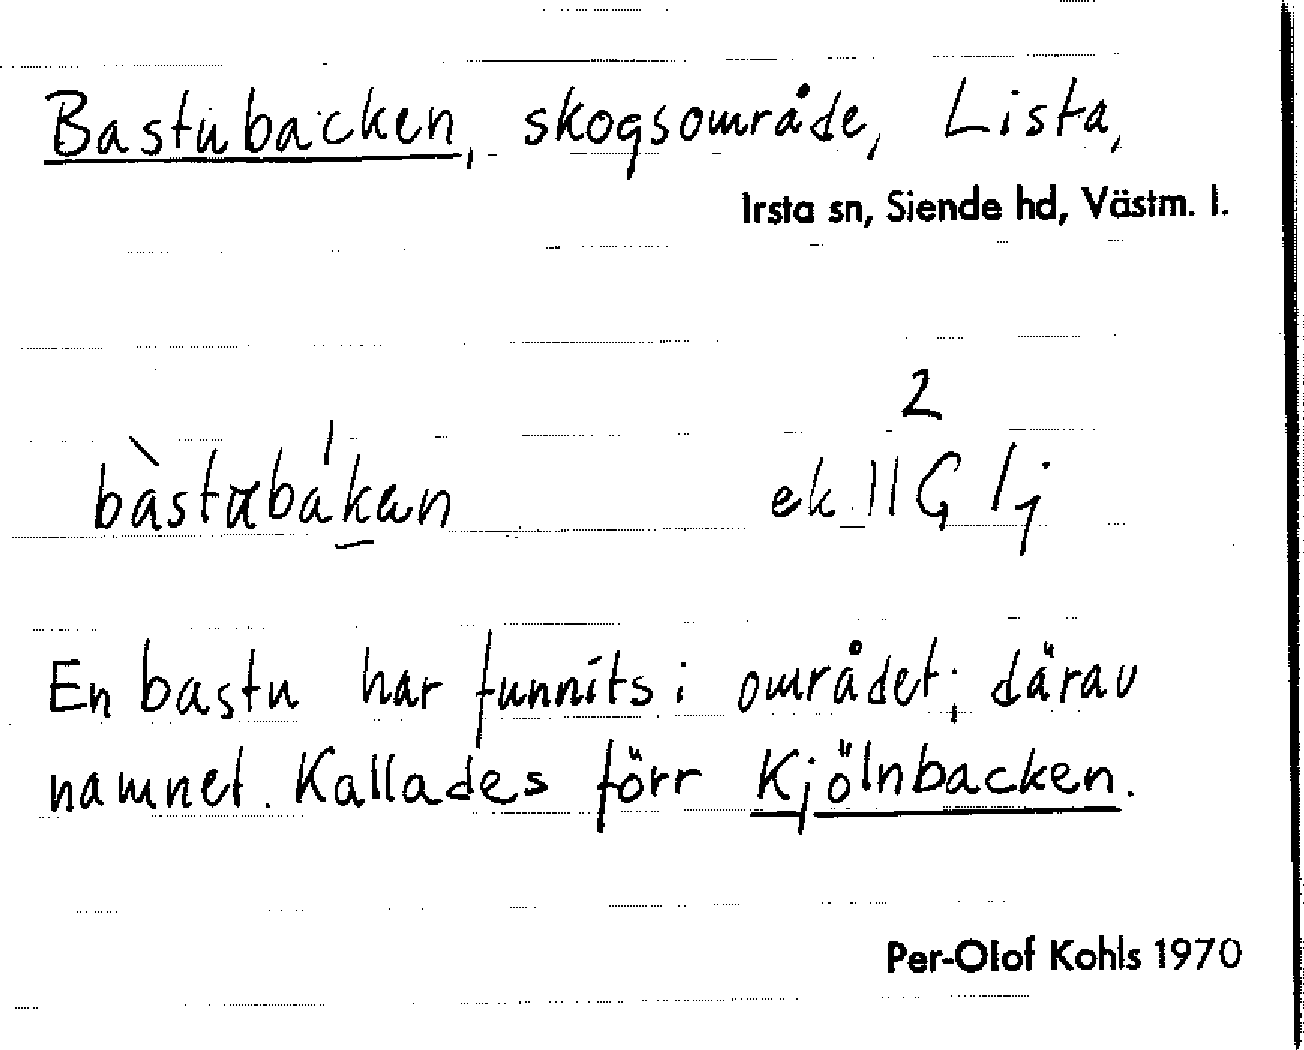 Bastubacken, skogsområde, Lista,
Irsta sn, Siende hd, Västm. l.
2
bàstubákan ek 11 G 1j
En bastu har funnits i området; därav
namnet. Kallades förr Kjölnbacken.
Per-Olof Kohls 1970